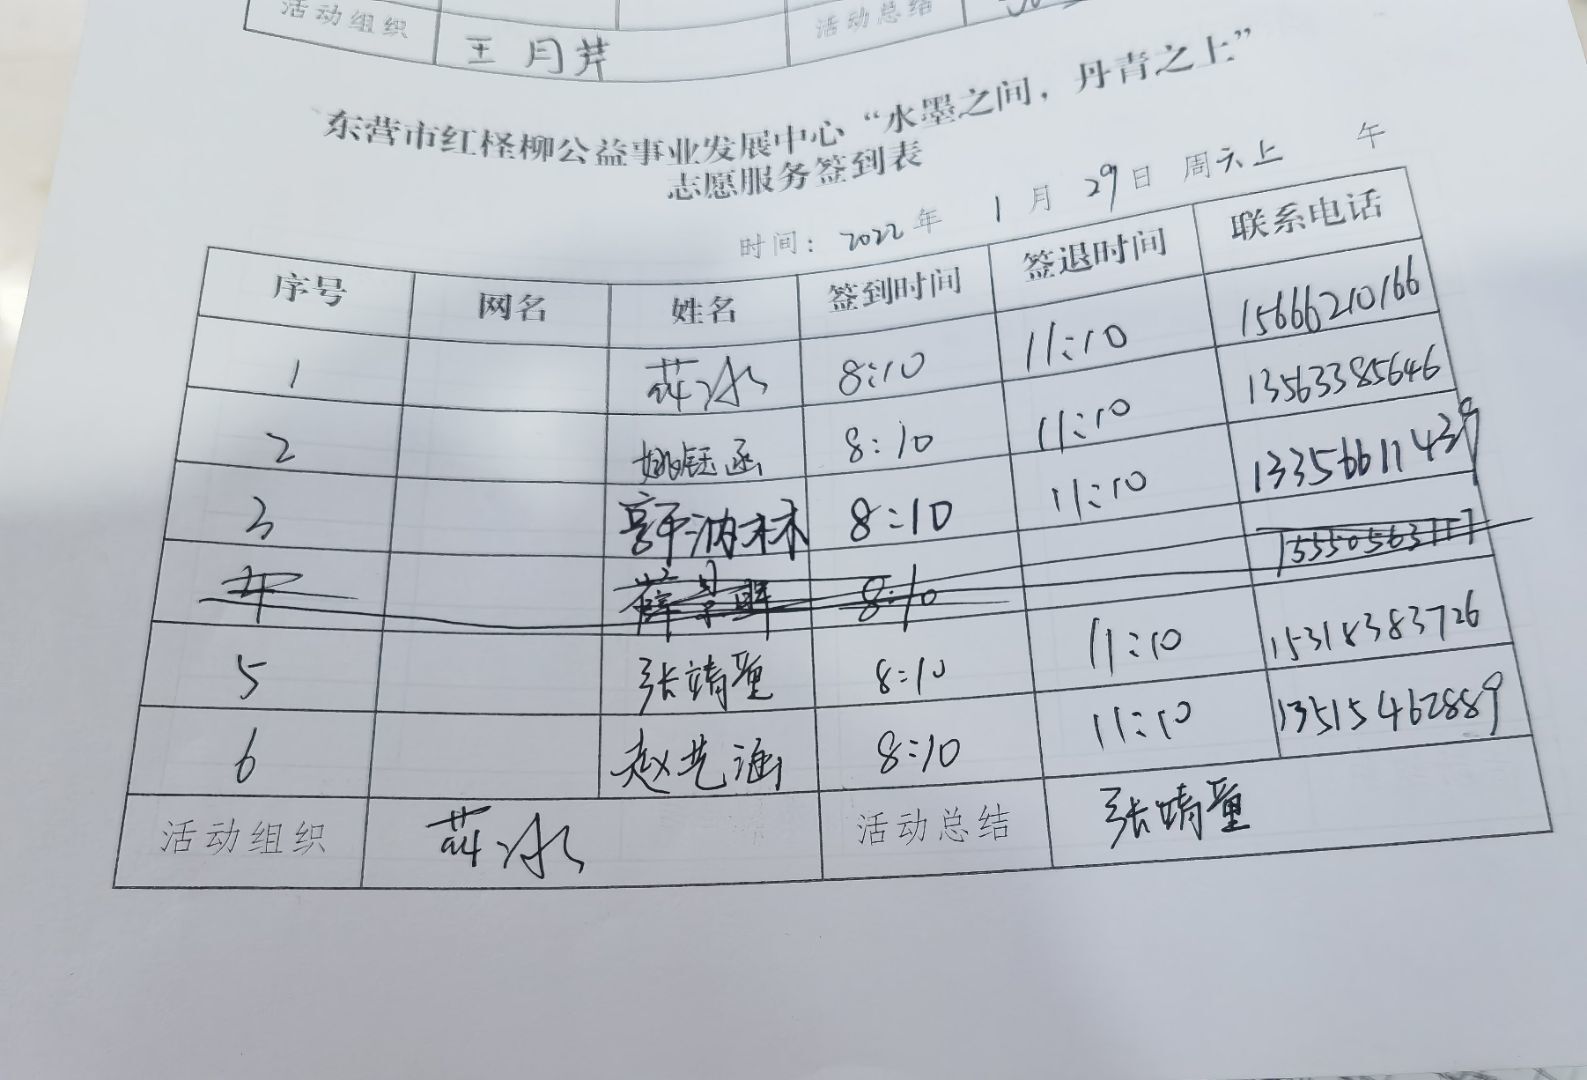 活动组织 王月芹 活动总结
东营市红柽柳公益事业发展中心“水墨之间，丹青之上”
志愿服务签到表
时间：2022年 1月 29日 周六上 午
序号 网名 姓名 签到时间 签退时间 联系电话
1 8:10 11:10 15666210166
2 姚钰函 8:10 11:10 13563385646
3 郭沩林 8:10 11:10 13356611439
4 8:10
5 张靖童 8:10 11:10 15318383726
6 赵艺涵 8:10 11:10 13515462889
活动组织 活动总结 张靖童